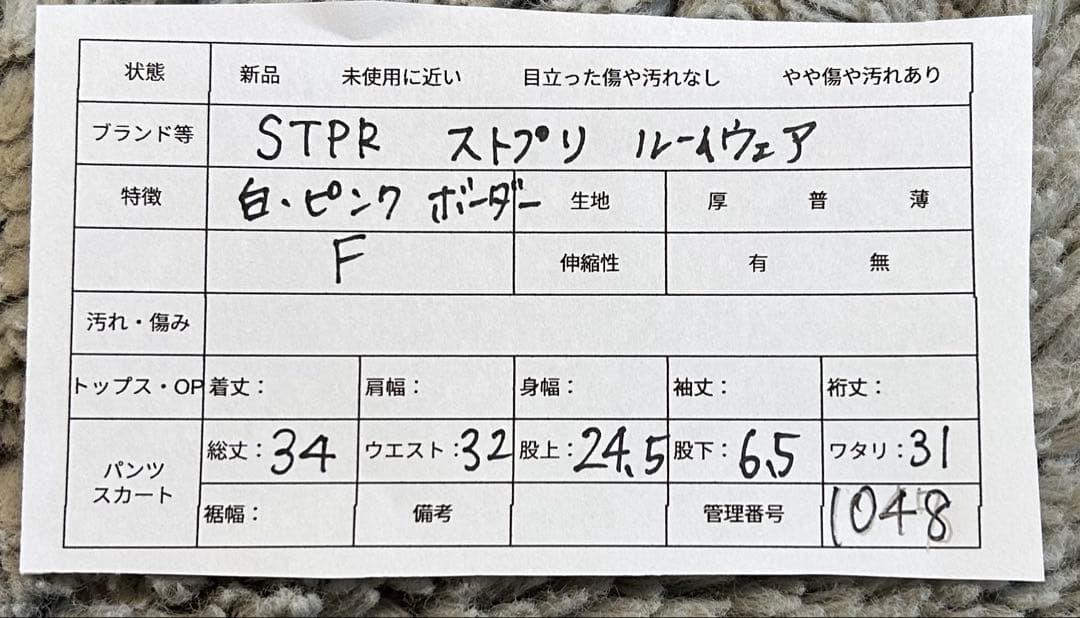 状態 新品 未使用に近い 目立った傷や汚れなし やや傷や汚れあり
ブランド等 STPR ストプリ ルームウェア
特徴 白・ピンク ボーダー 生地 厚 普 薄
F 伸縮性 有 無
汚れ・傷み
トップス・OP 着丈： 肩幅： 身幅： 袖丈： 裄丈：
パンツ スカート 総丈：34 ウエスト：32 股上：24.5 股下：6.5 ワタリ：31
裾幅： 備考 管理番号 1048